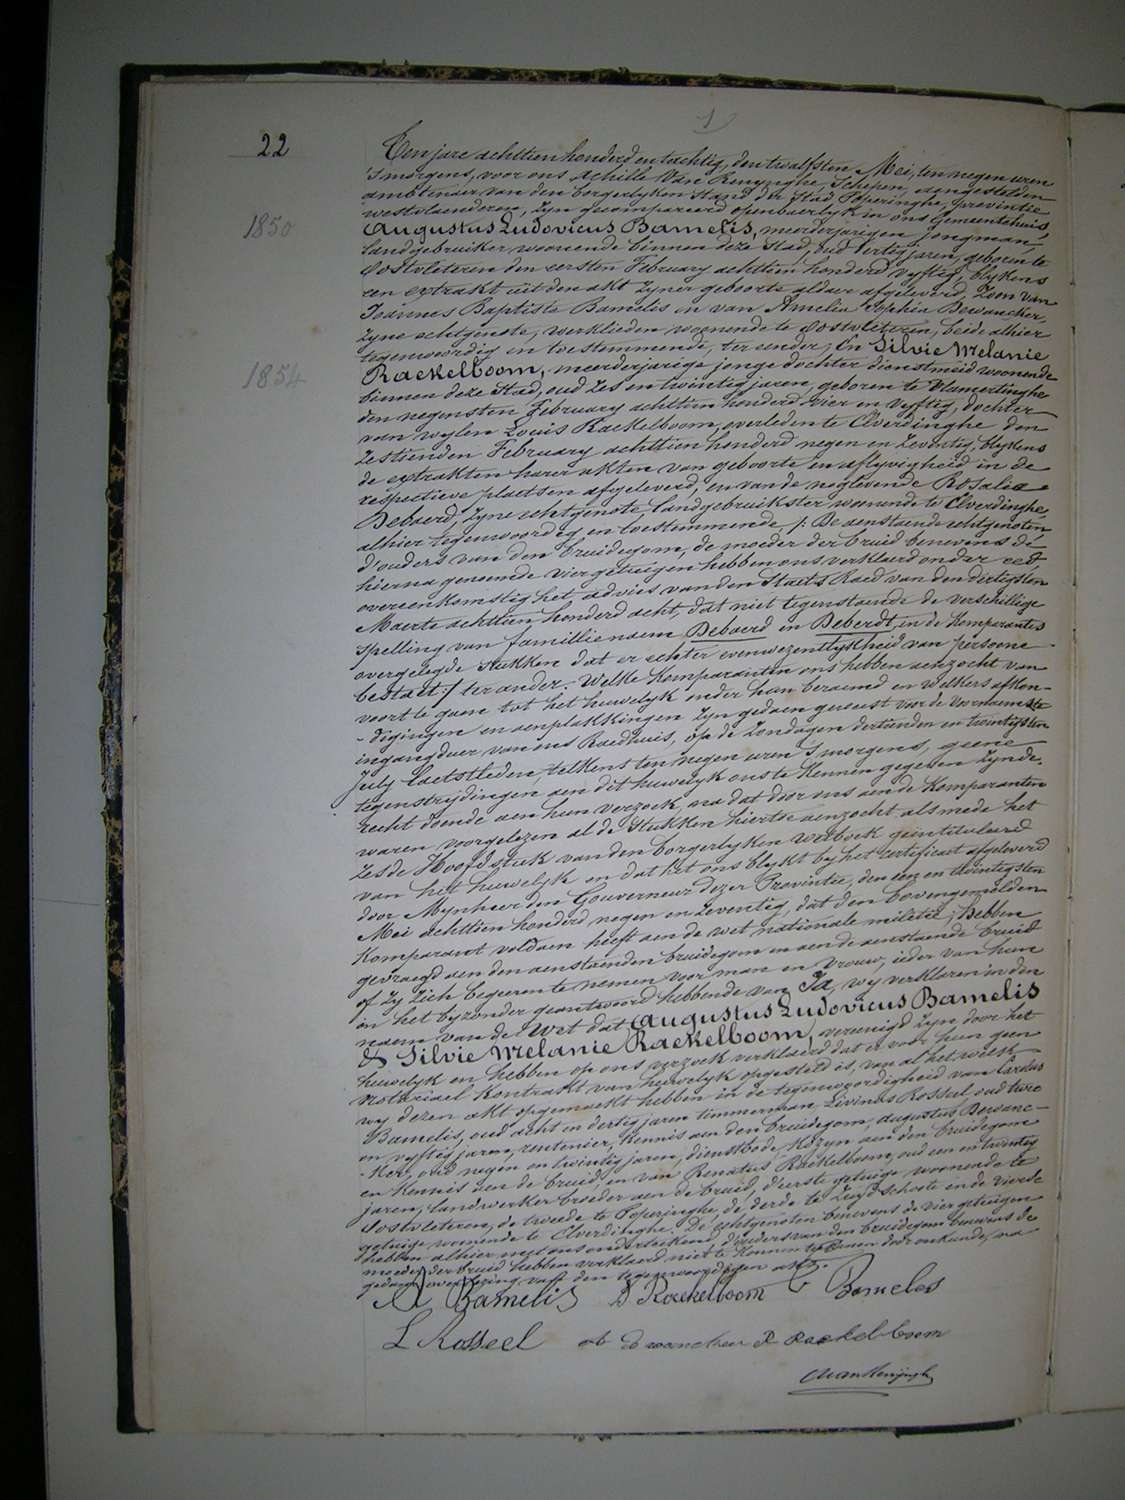 1
22
Ten jare achttien honderd en tachtig, den twalfsten Mei, ten negen uren
's morgens, voor ons Achille Van Renynghe, Schepen, aangestelden
ambtenaer van den borgerlyken Stand der Stad Poperinghe, provintie
westvlaenderen, zyn gecompareerd openbaerlyk in ons Gemeentehuis,
1850
Augustus Ludovicus Bamelis, meerderjarigen jongman,
landgebruiker woonende binnen deze Stad, oud dertig jaren, geboren te
Oostvleteren den eersten February achttien honderd vyftig, blykens
een extrakt uit den akt zyner geboorte aldaer afgeleverd, Zoon van
Joannes Baptiste Bamelis en van Amelia Sophia Dewancker,
zyne echtgenote, werklieden woonende te Oostvleteren, beide alhier
tegenwoordig en toestemmende, ter eender; En Silvie Melanie
1854
Raekelboom, meerderjarige jonge dochter dienstmeid woonende
binnen deze Stad, oud zes en twintig jaren, geboren te Vlamertinghe
den negensten February achttien honderd vier en vyftig, dochter
van wylen Louis Raekelboom, overleden te Elverdinghe den
zestienden February achttien honderd negen en zeventig, blykens
de extrakten harer akten van geboorte en aflyvigheid in de
respectieve plaetsen afgeleverd, en van de neglevende Rosalie
Debaerd, zyne echtgenote, landgebruikster woonende te Elverdinghe,
alhier tegenwoordig en toestemmende /: De aenstaende echtgenoten
d'ouders van den bruidegom, de moeder der bruid benevens de
hierna genoemde vier getuigen hebben ons verklaerd onder eed
overeenkomstig het advies van den Staets Raed van den dertigsten
Maerte achttien honderd acht, dat niet tegenstaende de verschillige
spelling van familienaem Debaerd en Deberdt, in de Komparantes
overgelegde stukken dat er echter evenwezentlykheid van persoone
bestaet :/ ter ander. Welke Komparanten ons hebben aenzocht van
voort te gaen tot het huwelyk onder hun beraemd en welkers afkon-
-digingen en aenplakkingen zyn gedaen geweest voor de voornaemste
ingangdeur van ons Raedhuis, op de zondagen dertienden en twintigsten
July laetstleden, telkens ten negen uren 's morgens, geene
tegenstrydingen aen dit huwelyk ons te kennen gegeven zynde,
recht doende aen hun verzoek, na dat door ons aen de Komparanten
waren voorgelezen al de Stukken hiertoe aenzocht alsmede het
zesde Hoofdstuk van den borgerlyken wetboek geintituleerd
van het huwelyk en dat het ons blykt by het certificaet afgeleverd
door Mynheer den Gouverneur dezer Provintie, den een en twintigsten
Mei achttien honderd negen en zeventig, dat den bovengemelden
Komparant voldaen heeft aen de wet nationale militie; Hebben
gevraegd aen den aenstaenden bruidegom en aen de aenstaende bruid
of zy zich begeeren te nemen voor man en vrouw, ieder van hun
in het byzonder geantwoord hebbende van Ja, wy verklaren in den
naem van de Wet dat Augustus Ludovicus Bamelis
& Silvie Melanie Raekelboom, vereenigd zyn door het
huwelyk en hebben op ons verzoek verklaerd dat er voor hun geen
notariael Kontrakt van huwelyk opgesteld is, van al het welk
wy dezen akt opgemaekt hebben in de tegenwoordigheid van Carolus
Bamelis, oud acht en dertig jaren timmerman, Livinus Rosseel oud twee
en vyftig jaren, rentenier, Kennis aen den bruidegom, Augustus Dewanc-
-ker, oud negen en twintig jaren, dienstbode, Kozyn aen den bruidegom
en Kennis aen de bruid, en van Renatus Raekelboom, oud een en twintig
jaren, landwerker broeder aen de bruid, d'eerste getuige woonende te
Oostvleteren, de tweede te Poperinghe, de derde te Zuydschoote en de vierde
getuige woonende te Elverdinghe. De echtgenoten benevens de vier getuigen
hebben alhier met ons onderteekend, d'ouders van den bruidegom benevens de
moeder der bruid hebben verklaerd niet te konnen teekenen door onkunde, na
gedane voorlezing van den tegenwoordigen akt.
A Bamelis S Raekelboom C Bamelis
L Rosseel R Raekelboom